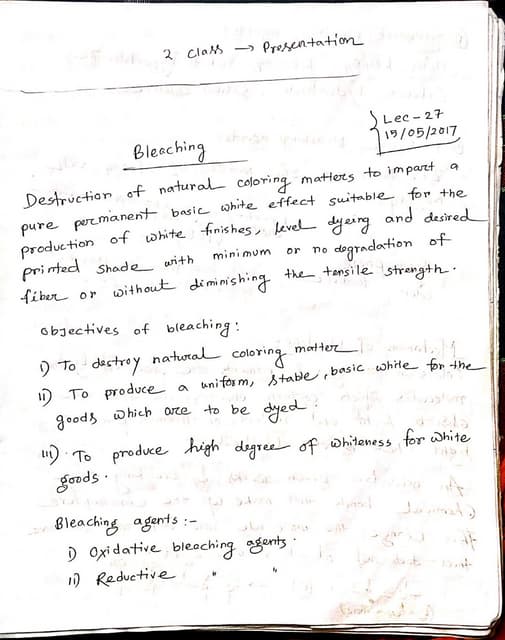 2 class → Presentation
Lec-27
15/05/2017
Bleaching
Destruction of natural coloring matters to impart a
pure permanent basic white effect suitable for the
production of white finishes, level dyeing and desired
printed shade with minimum or no degradation of
fiber or without diminishing the tensile strength.
Objectives of bleaching:
i) To destroy natural coloring matter
ii) To produce a uniform, stable, basic white for the
goods which are to be dyed.
iii) To produce high degree of whiteness for white
goods.
Bleaching agents :-
i) Oxidative bleaching agents.
ii) Reductive " "